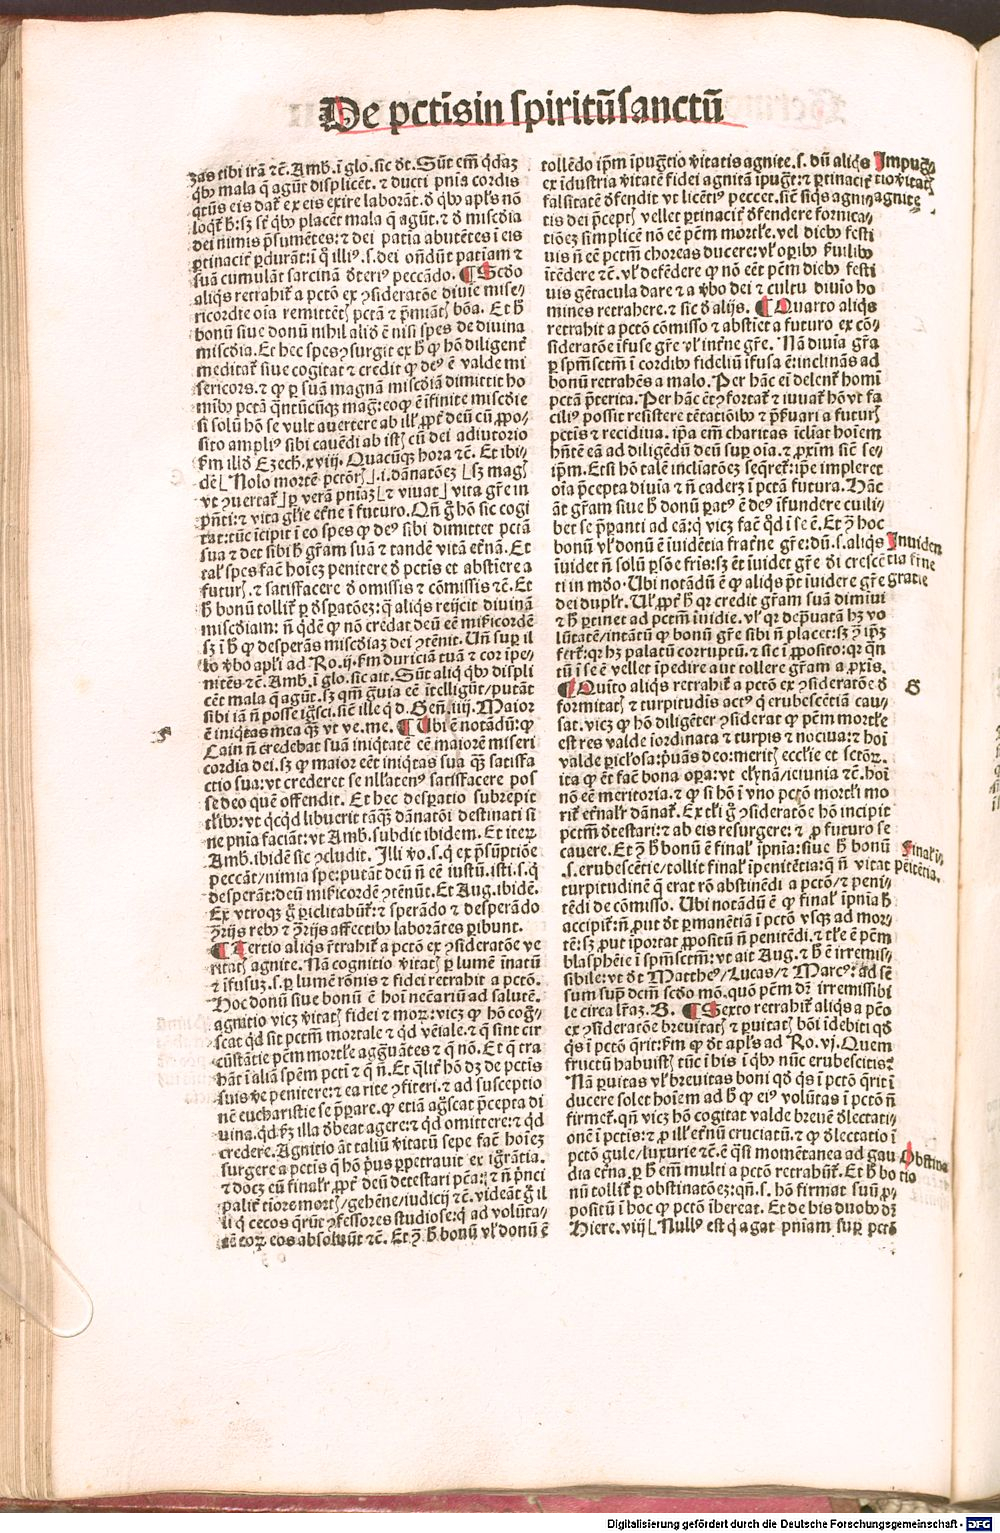 De pctīs in spiritū sanctū
zas tibi irā ⁊c̄. Amb. ī glo. sic dt. Sūt em̄ q̇daz
qb⁹ mala q̄ agūt displicēt. ⁊ ducti pnīa cordis
qtūs eis dat̄ ex eis exire laborāt. d̄ qb⁹ apl's nō
loqt̄ h̄: sz st̄ qb⁹ placēt mala q̄ agūt. ⁊ d̄ mīscdia
dei nimis p̄sumētes: ⁊ dei patīa abutētes ī eis
ꝑtinacit̄ ꝑdurāt: ī q̄ illi⁹.s. dei ondūt patīam ⁊
suā cumulāt sarcinā d̄teri⁹ peccādo. ¶ Scdo
aliqs retrahit̄ a pctō ex ꝯsideratōe diuīe mise-
ricordie oīa remittētꝭ pctā ⁊ p̄miātꝭ bōa. Et h̄
bonū siue donū nihil aliđ ē nisi spes de diuina
misc̄dia. Et hec spes ꝯsurgit ex h̄ ꝙ hō diligent̄
meditat̄ siue cogitat ⁊ credit ꝙ de⁹ ē valde mi
sericors. ⁊ ꝙ ꝑ suā magnā misc̄diā dimittit ho
mīb⁹ pctā q̄ntūcūqꝫ maḡ: eo ꝙ ē īfinite misc̄die
si solū hō se vult auertere ab ill' ꝓpt̄ deū cū ꝓpo-
sito ampli⁹ sibi cauēdi ab istꝭ cū dei adiutorio
km̄ illđ Ezech. xviij. Quacūqꝫ hora ⁊c̄. Et ibi-
dē ⌊Nolo mortē pctōrꝭ⌋.i. dānatōez ⌊sz magꝭ
vt ꝯuertat̄⌋ ꝑ verā pnīaz ⌊⁊ viuat⌋ vita gr̄e in
p̄nti: ⁊ vita gl'ie et̄ne ī futuro. Qn̄ g̊ hō sic cogi
tat: tūc īcipit ī eo spes ꝙ de⁹ sibi dimittet pctā
sua ⁊ det sibi h̄ gr̄am suā ⁊ tandē vitā et̄nā. Et
tal' spes fac̄ hoīez penitere d̄ pctīs et abstiere a
futurꝭ. ⁊ satisfacere d̄ omissis ⁊ cōmissis ⁊c̄. Et
h̄ bonū tollit̄ ꝑ d̄sꝑatōez: q̄ aliqs reijcit diuinā
misc̄diam: n̄ q̇dē ꝙ nō credat deū eē mīkicordē
sz ī h̄ ꝙ desperās misc̄diaz dei ꝯtēnit. Un̄ suꝑ il
lo v̄bo apl'i ad Ro. ij. km̄ duriciā tuā ⁊ cor īpe-
nitēs ⁊c̄. Amb. ī glo. sic ait. Sūt aliq̇ qb⁹ displi
cēt mala q̄ agūt. sz qm̄ g̊uia eē ītelligūt/putāt
sibi iā n̄ posse ig̊sci. sic ille q̇ d. Gen̄. iiij. Maior
ē iniqtas mea qꝫ vt ve. me. ¶ Ubi ē notādū: ꝙ
Cain n̄ credebat suā iniqtatē eē maiorē miseri
cordia dei. sz ꝙ maior eēt iniqtas sua qꝫ satisfa
ctio sua: vt crederet se nllaten⁹ satisfacere pos
se deo quē offendit. Et hec despatio subrepit
tl'ib⁹: vt q̇cq̇d libuerit tāqꝫ dānatōi destinati si
ne pnīa faciāt: vt Amb. subdit ibidem. Et iteꝝ
Amb. ibidē sic ꝯcludit. Illi v̄o.s. q̇ ex p̄sūptiōe
peccāt/nimia spe: putāt deū n̄ eē iustū. isti.s. q̇
desperāt: deū mīkicordē ꝯtēnūt. Et Aug. ibidē.
Ex vtroqꝫ g̊ ꝑiclitabūt̄: ⁊ sperādo ⁊ desperādo
ꝯr̄ijs reb⁹ ⁊ ꝯr̄ijs affectib⁹ laborātes ꝑibunt.
¶ Tertio aliqs r̄trahit̄ a pctō ex ꝯsideratōe ve
ritatꝭ agnite. Nā cognitio v̄itatꝭ ꝑ lumē īnatū
⁊ īfusuz.s. ꝑ lumē rōnis ⁊ fidei retrahit a pctō.
Hoc donū siue bonū ē hoī necāriū ad salutē.
agnitio vicz v̄itatꝭ fidei ⁊ moꝝ: vicz ꝙ hō cog̊-
scat q̇d sit pctm̄ mortale ⁊ q̇d vēiale. ⁊ q̄ sint cir
cūstātie pēm mortl'e agg̊uātes ⁊ q̄ nō. Et q̄ tra
hāt ī aliā spēm pcti ⁊ q̄ n̄. Et q̄lit̄ hō dz de pctīs
suis ve penitere: ⁊ ea rite ꝯfiteri. ⁊ ad susceptio
nē eucharistie se p̄ꝑare. ꝙ etiā ag̊scat p̄cepta di
uina. q̇d kꝫ illa d̄beat agere: ⁊ q̇d omittere: ⁊ q̇d
credere. Agnitio āt taliū v̄itatū sepe fac̄ hoīez
surgere a pctīs q̄ hō p̄us ꝑpetrauit ex ig̊rātia.
⁊ docz eū final'r ꝓpt̄ deū detestari pc̄a: ⁊ n̄ p̄nci
palit̄ tiore mortꝭ/gehēne/iudicij ⁊c̄. videāt g̊ il
li q̇ cecos q̄rūt ꝯfessores studiose: q̇ ad volūta-
tē eoꝝ eos absoluūt ⁊c̄. Et ꝯ̄ h̄ bonū vl' donū ē
F
tollēdo ip̄m īpug̊tio v̄itatis agnite.s. dū aliqs
ex īdustria v̄itatē fidei agnitā īpug̊t: ⁊ ꝑtinacit̄
falsitatē d̄fendit vt licēti⁹ peccet. sic̄ siqs agni-
tis dei p̄ceptꝭ vellet ꝑtinacit̄ d̄fendere fornica-
tiōez simplicē nō eē pēm mortl'e. vel dieb⁹ festi
uis n̄ eē pctm̄ choreas ducere: vl' oꝑib⁹ s̄uilib⁹
ītēdere ⁊c̄. vl' defēdere ꝙ nō eēt pēm dieb⁹ festi
uis gētacula dare ⁊ a v̄bo dei ⁊ cultu diuīo ho
mines retrahere. ⁊ sic d̄ alijs. ¶ Quarto aliqs
retrahit̄ a pctō cōmisso ⁊ abstiet a futuro ex cō-
sideratōe īfuse gr̄e vl' īt̄ne gr̄e. Nā diuīa gr̄a
ꝑ spm̄sctm̄ ī cordib⁹ fideliū īfusa ē: inclinās ad
bonū retrahēs a malo. Per hāc eī delent̄ homī
pctā p̄terita. Per hāc ēt ꝯfortat̄ ⁊ iuuat̄ hō vt fa
cili⁹ possit resistere tētatōib⁹ ⁊ p̄s̄uari a futurꝭ
pctīs ⁊ recidiua. ip̄a em̄ charitas īcliāt hoīem
hn̄tē eā ad diligēdū deū suꝑ oīa. ⁊ ꝓxīm sic̄ se-
ip̄m. Etsi hō talē incliatōez seq̄ret̄: ip̄e impleret
oīa p̄cepta diuīa ⁊ n̄ caderz ī pctā futura. Hāc
āt gr̄am siue h̄ donū ꝑat⁹ ē de⁹ īfundere cuili-
bet se p̄ꝑanti ad eā: q̇ vicz fac̄ q̇d ī se ē. Et ꝯ̄ hoc
bonū vl' donū ē īuidētia frat̄ne gr̄e: dū.s. aliqs
īuidet n̄ solū ꝑsōe fr̄is: sz ēt īuidet gr̄e d̄i crescē
ti in mdo. Ubi notādū ē ꝙ aliqs p̄t īuidere gr̄e
dei dupl'r. Ul' ꝓpt̄ h̄ qr credit gr̄am suā dimīui
⁊ h̄ ꝑtinet ad pctm̄ īuidie. vl' qr dep̄uatā hz vo
lūtatē/intātū ꝙ bonū gr̄e sibi n̄ placet: sz ꝯ̄ ip̄z
fert̄: qr hz palatū corruptū. ⁊ sic ī ꝓposito: qr q̄n
tū ī se ē vellet īpedire aut tollere gr̄am a ꝓxis.
¶ Quīto aliqs retrahit̄ a pctō ex ꝯsideratōe d̄
formitatꝭ ⁊ turpitudīs act⁹ q̄ erubescētiā cau-
sat. vicz ꝙ hō diligēter ꝯsiderat ꝙ pēm mortl'e
est res valde īordinata ⁊ turpis ⁊ nociua: ⁊ hoī
valde ꝑicl'osa: p̄uās deo: meritꝭ eccl'ie et sctōꝝ.
ita ꝙ ēt fac̄ bona oꝑa: vt el'ynā/iciunia ⁊c̄. hoī
nō eē meritoria. ⁊ ꝙ si hō ī vno pctō mortl'i mo
rit̄ et̄nal'r dānat̄. Ex tl'i g̊ ꝯsideratōe hō incipit
pctm̄ d̄testari: ⁊ ab eis resurgere: ⁊ ꝓ futuro se
cauere. Et ꝯ̄ h̄ bonū ē final' īpnīa: siue h̄ bonū
.s. erubescētie/tollit final' īpenitētia: q̄ n̄ vitat
turpitudinē q̄ erat rō abstinēdi a pctō/⁊ peni-
tēdi de cōmisso. Ubi notādū ē ꝙ final' īpnīa h̄
accipit̄: n̄ put dt̄ ꝑmanētiā ī pctō vsqꝫ ad mor-
tē: sz put īportat ꝓpositū n̄ penitēdi. ⁊ tl'e ē pēm
blasphēie ī spm̄sctm̄: vt ait Aug. ⁊ h̄ ē irremis-
sibile: vt dt̄ Matthe⁹/Lucas/⁊ Marc⁹: ad sē
sum sup̄ dcm̄ scdo mō. quō pēm dz̄ irremissibi
le circa lr̄az. B. ¶ Sexto retrahit̄ aliqs a pc̄o
ex ꝯsideratōe breuitatꝭ ⁊ ꝑuitatꝭ bōi īdebiti qđ
q̇s ī pctō q̄rit: km̄ ꝙ dt̄ apl's ad Ro. vj. Quem
fructū habuistꝭ tūc ī his ī qb⁹ nūc erubescitis?
Nā ꝑuitas vl' breuitas boni qđ q̇s ī pctō q̄rit ī
ducere solet hoīem ad h̄ ꝙ ei⁹ volūtas ī pctō n̄
firmet̄. qn̄ vicz hō cogitat valde breuē d̄lectati-
onē ī pctīs: ⁊ ꝓ ill' et̄nū cruciatū. ⁊ ꝙ d̄lectatio ī
pctō gule/luxurie ⁊c̄. ē q̄si momētanea ad gau
dia et̄na. ꝑ h̄ em̄ multi a pctō retrahūt̄. Et h̄ bo
nū tollit̄ ꝑ obstinatōez: qn̄.s. hō firmat suū ꝓ-
positū ī hoc ꝙ pctō ihereat. Et de his duob⁹ dz̄
Hiere. viij ⌊Null⁹ est q̇ agat pnīam suꝑ pctō
Impug-
tio v̄itatꝭ
agnite
Inuiden
tia fr̄ne
gratie
G
Finalī-
pēitētia.
Obstina
tio
Digitalisierung gefördert durch die Deutsche Forschungsgemeinschaft - DFG